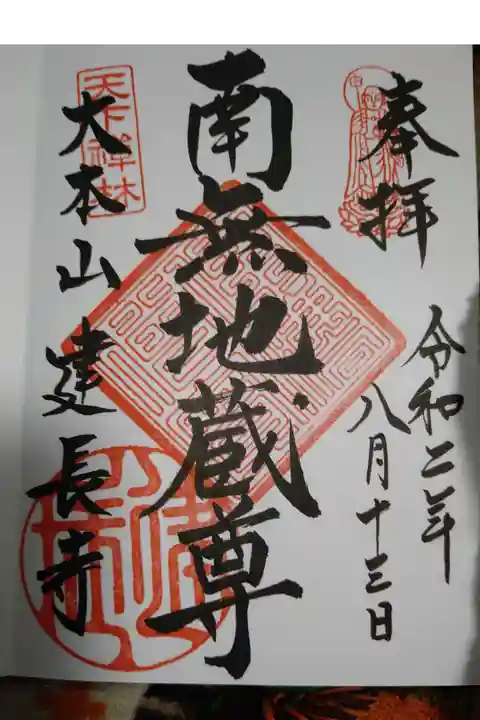 奉拝
令和二年
八月十三日
南無地蔵尊
天下禅林
大本山建長寺